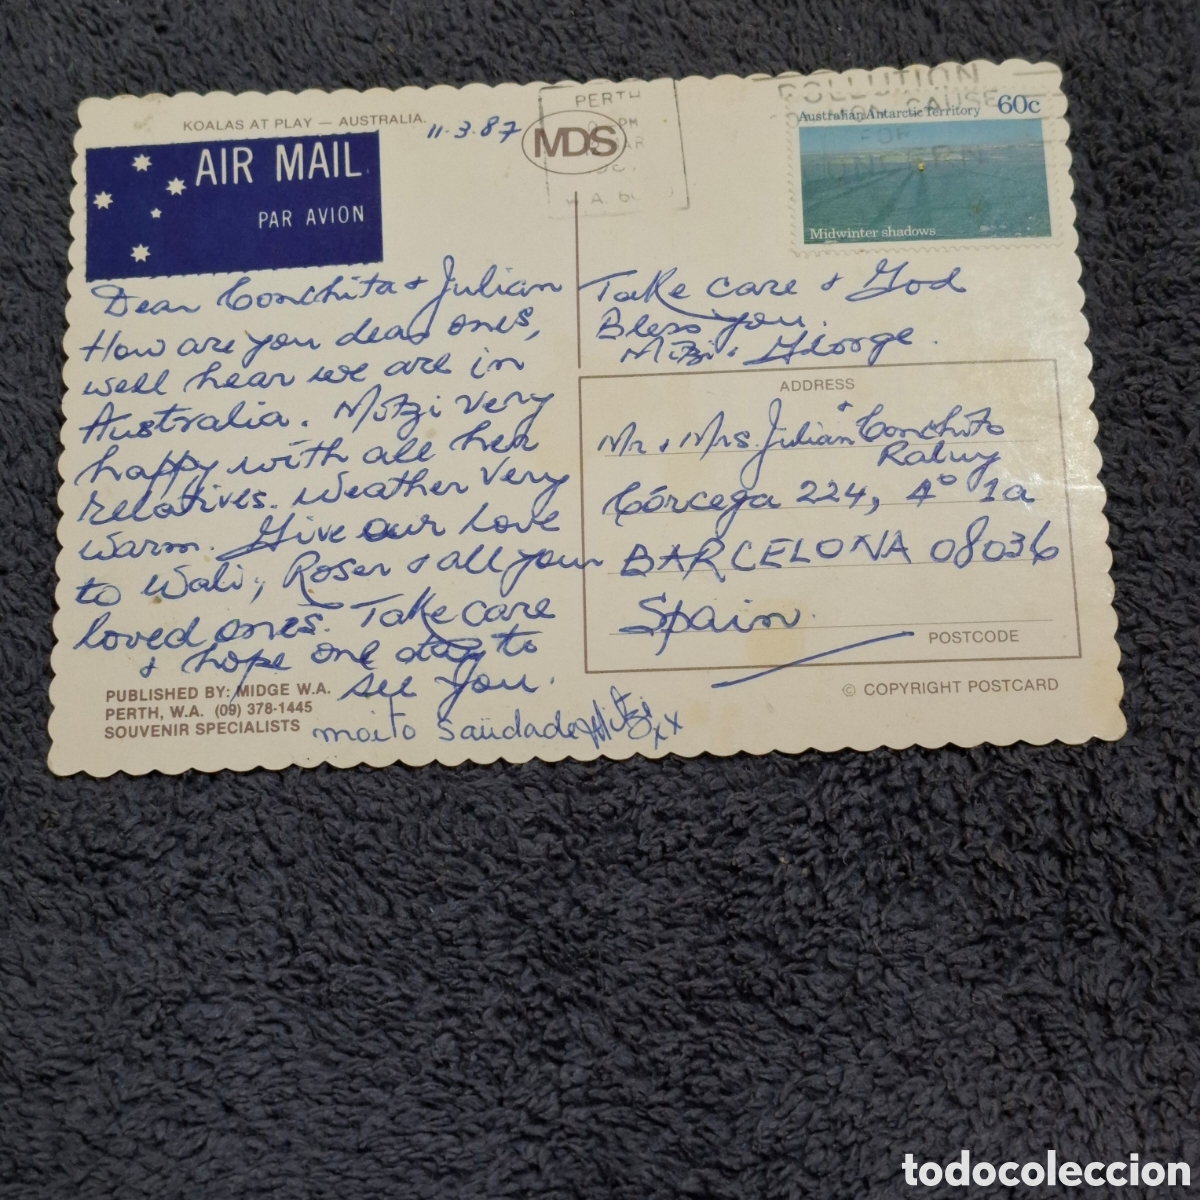 KOALAS AT PLAY — AUSTRALIA.
11-3.87
AIR MAIL
PAR AVION
PERTH
MDS
POLLUTION
CAUSE
FOR
Australian Antarctic Territory 60c
Midwinter shadows
Dear Conchita + Julian
How are you dear ones,
well hear we are in
Australia. Mitzi very
happy with all her
relatives. Weather very
warm. Give our love
to Wali, Roser + all your
loved ones. Take care
+ hope one day to
see you.
Saudade Mitzi xx
Take care + God
Bless you.
Mitzi + George.
ADDRESS
Mr + Mrs Julian + Conchita
Córcega 224, 4º 1a
BARCELONA 08036
Spain.
POSTCODE
PUBLISHED BY: MIDGE W.A.
PERTH, W.A. (09) 378-1445
SOUVENIR SPECIALISTS
© COPYRIGHT POSTCARD
todocoleccion